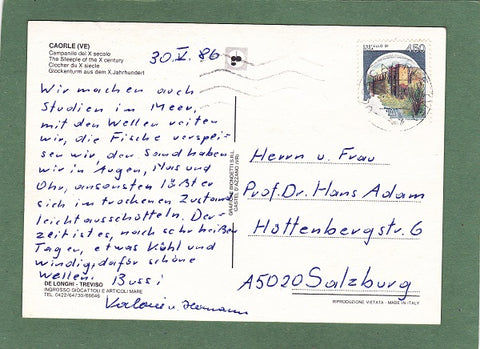 CAORLE (VE)
Campanile del X secolo
The Steeple of the X century
Clocher du X siecle
Glockenturm aus dem X Jahrhundert
30.V.86
450
Wir machen auch
Studien im Meer,
mit den Wellen reiten
wir, die Fische verspei-
sen wir, den Sand haben
wir in Augen, Nas und
Ohr, ansonsten läßt er
sich im trockenen Zustand
leicht ausschütteln. Der-
zeit ist, nach sehr heißen
Tagen, etwas kühl und
windig, dafür schöne
Wellen. Bussi
DE LONGHI - TREVISO
INGROSSO GIOCATTOLI E ARTICOLI MARE
TEL. 0422/64730/66646
Herrn u. Frau
Prof. Dr. Hans Adam
Hottenbergstr. 6
A5020 Salzburg
RIPRODUZIONE VIETATA - MADE IN ITALY